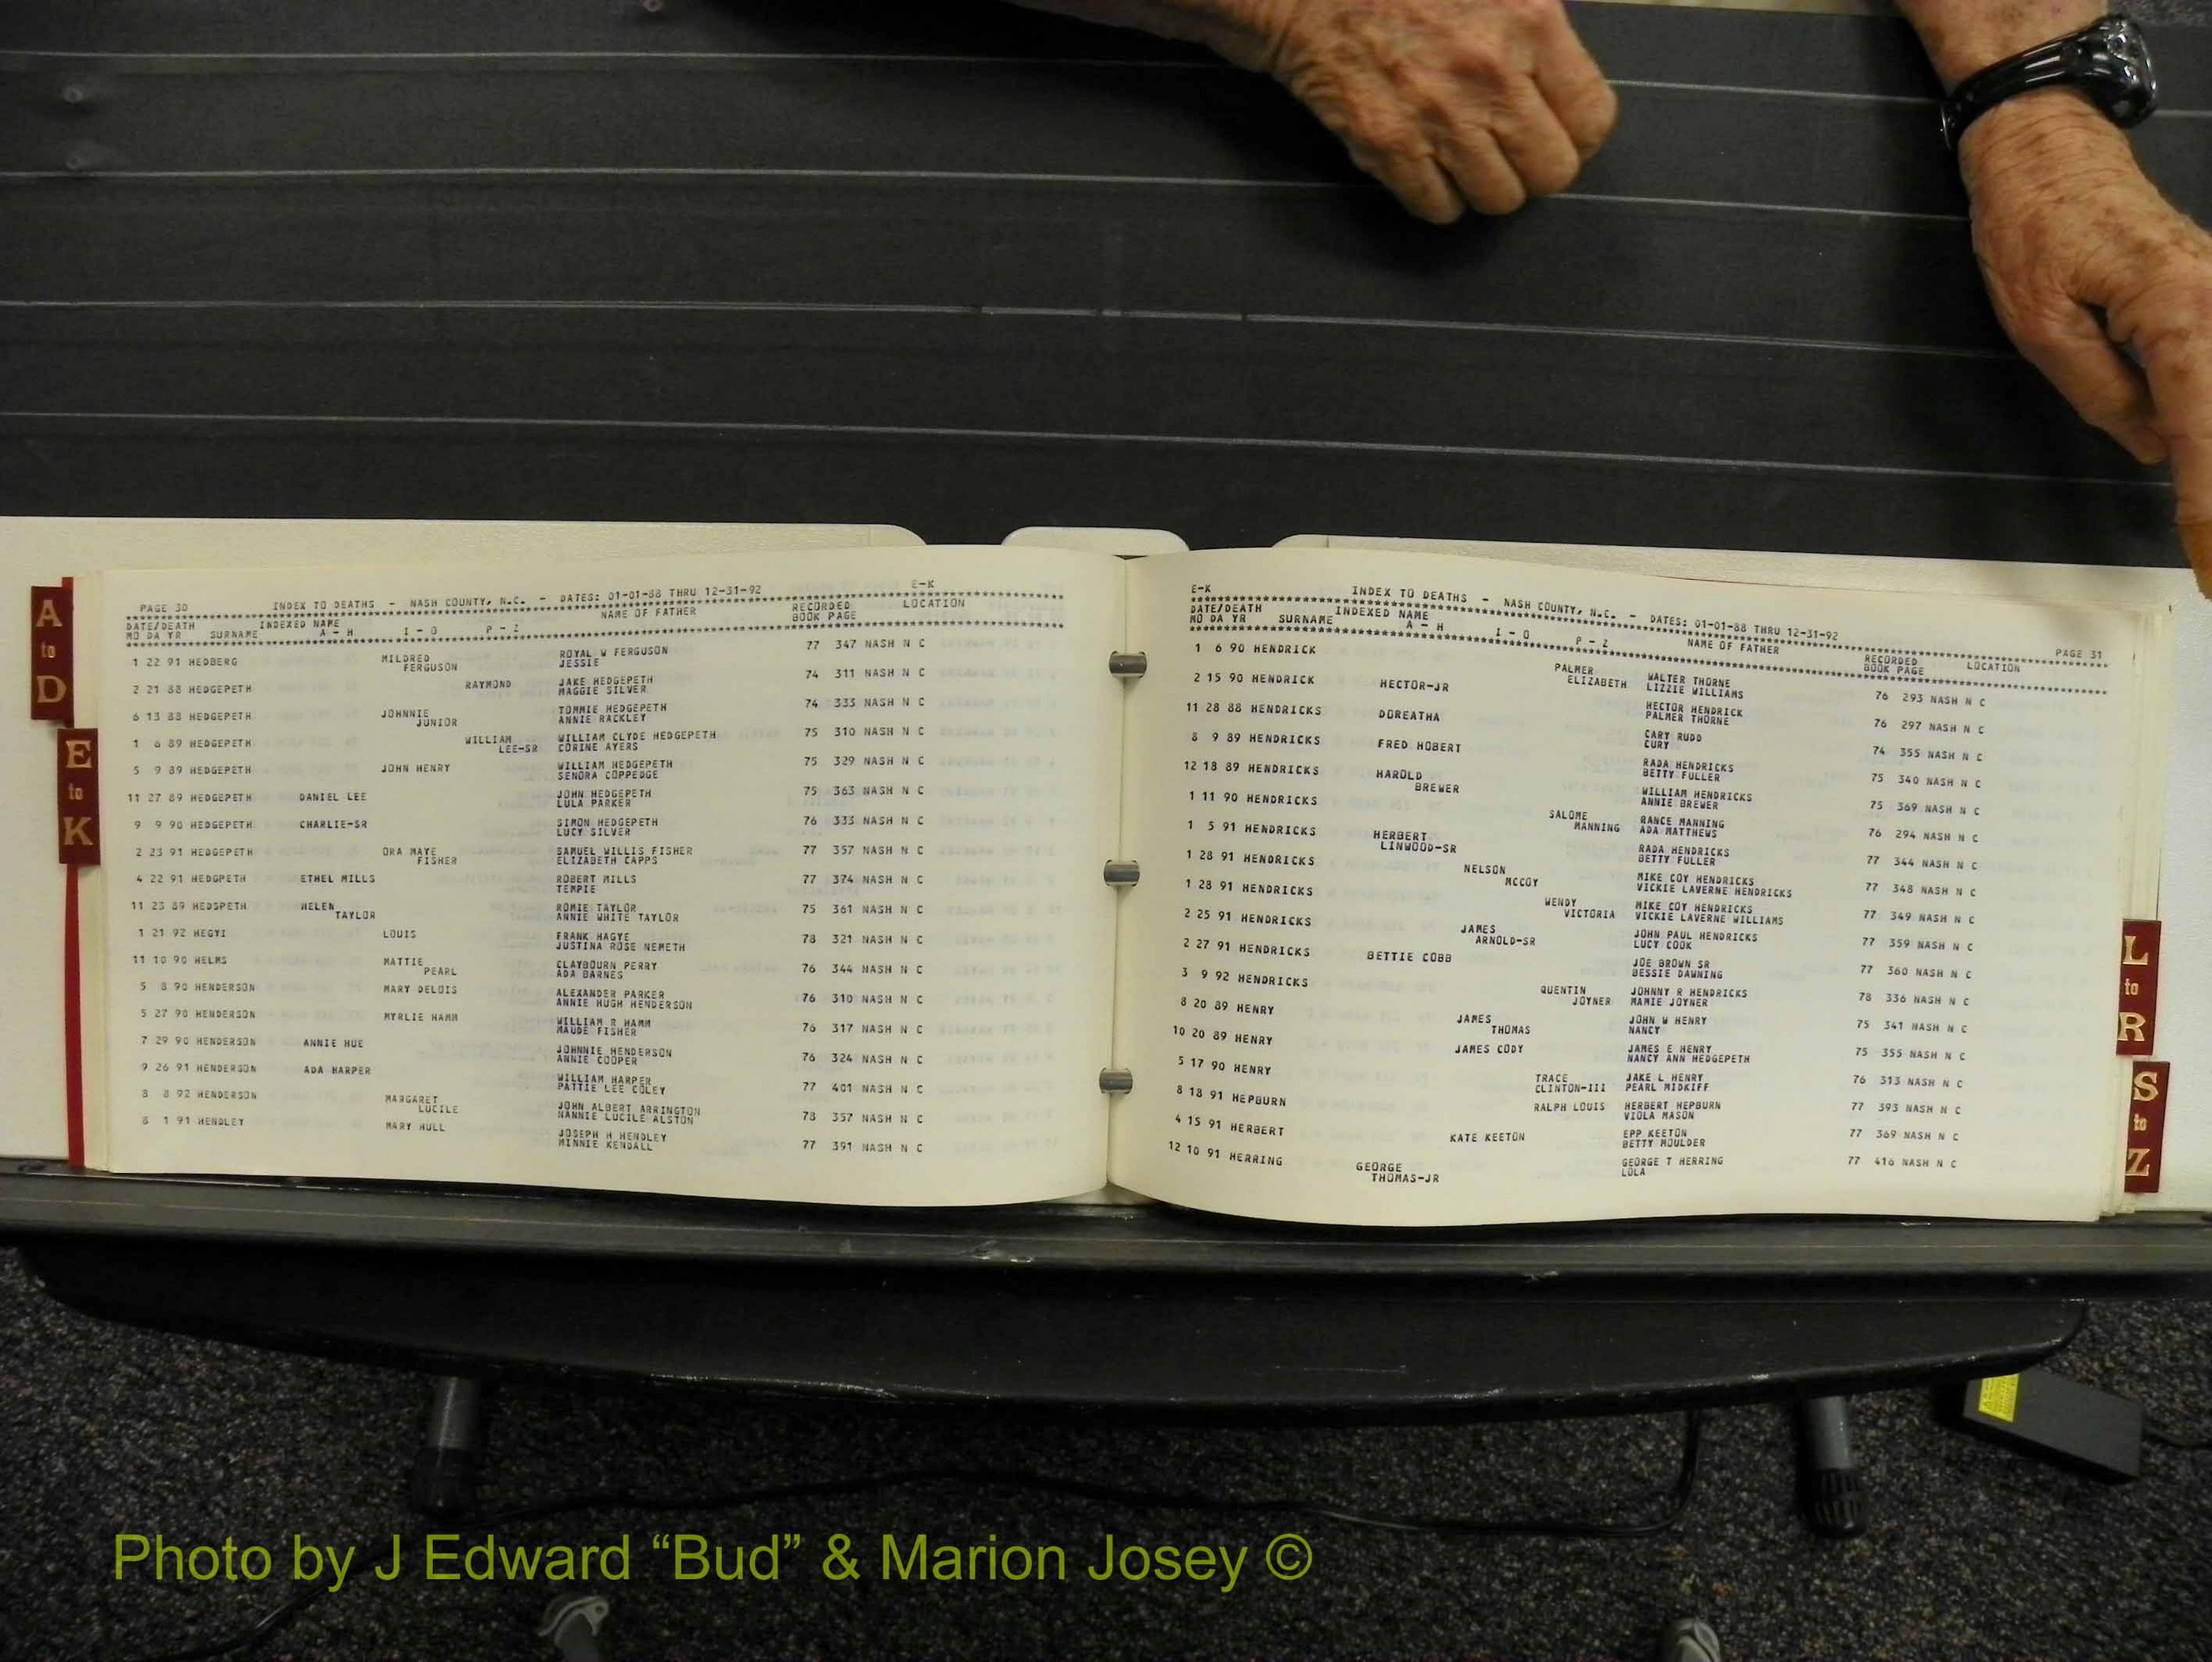 A
to
D
E
to
K
PAGE 30 INDEX TO DEATHS - NASH COUNTY, N.C. - DATES: 01-01-88 THRU 12-31-92 E-K
DATE/DEATH INDEXED NAME NAME OF FATHER RECORDED LOCATION
MO DA YR SURNAME A - H I - O P - Z BOOK PAGE
1 22 91 HEDBERG MILDRED ROYAL W FERGUSON 77 347 NASH N C
FERGUSON JESSIE
2 21 88 HEDGEPETH RAYMOND JAKE HEDGEPETH 74 311 NASH N C
MAGGIE SILVER
6 13 88 HEDGEPETH JOHNNIE TOMMIE HEDGEPETH 74 333 NASH N C
JUNIOR ANNIE RACKLEY
1 6 89 HEDGEPETH WILLIAM WILLIAM CLYDE HEDGEPETH 75 310 NASH N C
LEE-SR CORINE AYERS
5 9 89 HEDGEPETH JOHN HENRY WILLIAM HEDGEPETH 75 329 NASH N C
SENORA COPPEDGE
11 27 89 HEDGEPETH DANIEL LEE JOHN HEDGEPETH 75 363 NASH N C
LULA PARKER
9 9 90 HEDGEPETH CHARLIE-SR SIMON HEDGEPETH 76 333 NASH N C
LUCY SILVER
2 23 91 HEDGEPETH ORA MAYE SAMUEL WILLIS FISHER 77 357 NASH N C
FISHER ELIZABETH CAPPS
4 22 91 HEDGPETH ETHEL MILLS ROBERT MILLS 77 374 NASH N C
TEMPIE
11 23 89 HEDSPETH HELEN ROMIE TAYLOR 75 361 NASH N C
TAYLOR ANNIE WHITE TAYLOR
1 21 92 HEGYI LOUIS FRANK HAGYE 78 321 NASH N C
JUSTINA ROSE NEMETH
11 10 90 HELMS MATTIE CLAYBOURN PERRY 76 344 NASH N C
PEARL ADA BARNES
5 8 90 HENDERSON MARY DELOIS ALEXANDER PARKER 76 310 NASH N C
ANNIE HUGH HENDERSON
5 27 90 HENDERSON MYRLIE HAMM WILLIAM R HAMM 76 317 NASH N C
MAUDE FISHER
7 29 90 HENDERSON ANNIE HUE JOHNNIE HENDERSON 76 324 NASH N C
ANNIE COOPER
9 26 91 HENDERSON ADA HARPER WILLIAM HARPER 77 401 NASH N C
PATTIE LEE COLEY
8 8 92 HENDERSON MARGARET JOHN ALBERT ARRINGTON 78 357 NASH N C
LUCILE NANNIE LUCILE ALSTON
8 1 91 HENDLEY MARY HULL JOSEPH H HENDLEY 77 391 NASH N C
MINNIE KENDALL
E-K INDEX TO DEATHS - NASH COUNTY, N.C. - DATES: 01-01-88 THRU 12-31-92 PAGE 31
DATE/DEATH INDEXED NAME NAME OF FATHER RECORDED LOCATION
MO DA YR SURNAME A - H I - O P - Z BOOK PAGE
1 6 90 HENDRICK PALMER WALTER THORNE 76 293 NASH N C
ELIZABETH LIZZIE WILLIAMS
2 15 90 HENDRICK HECTOR-JR HECTOR HENDRICK 76 297 NASH N C
PALMER THORNE
11 28 88 HENDRICKS DOREATHA CARY RUDD 74 355 NASH N C
CURY
8 9 89 HENDRICKS FRED HOBERT RADA HENDRICKS 75 340 NASH N C
BETTY FULLER
12 18 89 HENDRICKS HAROLD WILLIAM HENDRICKS 75 369 NASH N C
BREWER ANNIE BREWER
1 11 90 HENDRICKS SALOME RANCE MANNING 76 294 NASH N C
MANNING ADA MATTHEWS
1 5 91 HENDRICKS HERBERT RADA HENDRICKS 77 344 NASH N C
LINWOOD-SR BETTY FULLER
1 28 91 HENDRICKS NELSON MIKE COY HENDRICKS 77 348 NASH N C
MCCOY VICKIE LAVERNE HENDRICKS
1 28 91 HENDRICKS WENDY MIKE COY HENDRICKS 77 349 NASH N C
VICTORIA VICKIE LAVERNE WILLIAMS
2 25 91 HENDRICKS JAMES JOHN PAUL HENDRICKS 77 359 NASH N C
ARNOLD-SR LUCY COOK
2 27 91 HENDRICKS BETTIE COBB JOE BROWN SR 77 360 NASH N C
BESSIE DAWNING
3 9 92 HENDRICKS QUENTIN JOHNNY R HENDRICKS 78 336 NASH N C
JOYNER MAMIE JOYNER
8 20 89 HENRY JAMES JOHN W HENRY 75 341 NASH N C
THOMAS NANCY
10 20 89 HENRY JAMES CODY JAMES E HENRY 75 355 NASH N C
NANCY ANN HEDGEPETH
5 17 90 HENRY TRACE JAKE L HENRY 76 313 NASH N C
CLINTON-III PEARL MIDKIFF
8 18 91 HEPBURN RALPH LOUIS HERBERT HEPBURN 77 393 NASH N C
VIOLA MASON
4 15 91 HERBERT KATE KEETON EPP KEETON 77 369 NASH N C
BETTY MOULDER
12 10 91 HERRING GEORGE GEORGE T HERRING 77 416 NASH N C
THOMAS-JR LOLA
L
to
R
S
to
Z
Photo by J Edward “Bud” & Marion Josey ©